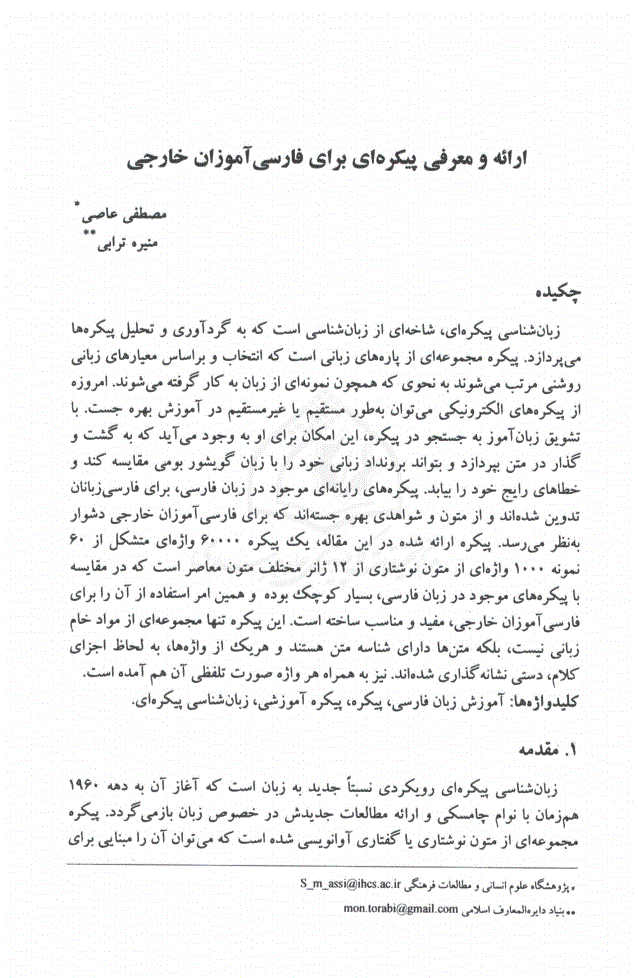 ارائه و معرفی پیکره‌ای برای فارسی‌آموزان خارجی
مصطفی عاصی*
منیره ترابی**
چکیده
زبان‌شناسی پیکره‌ای، شاخه‌ای از زبان‌شناسی است که به گردآوری و تحلیل پیکره‌ها
می‌پردازد. پیکره مجموعه‌ای از پاره‌های زبانی است که انتخاب و براساس معیارهای زبانی
روشنی مرتب می‌شوند به نحوی که همچون نمونه‌ای از زبان به کار گرفته می‌شوند. امروزه
از پیکره‌های الکترونیکی می‌توان به‌طور مستقیم یا غیرمستقیم در آموزش بهره جست. با
تشویق زبان‌آموز به جستجو در پیکره، این امکان برای او به وجود می‌آید که به گشت و
گذار در متن بپردازد و بتواند برونداد زبانی خود را با زبان گویشور بومی مقایسه کند و
خطاهای رایج خود را بیابد. پیکره‌های رایانه‌ای موجود در زبان فارسی، برای فارسی‌زبانان
تدوین شده‌اند و از متون و شواهدی بهره جسته‌اند که برای فارسی‌آموزان خارجی دشوار
به‌نظر می‌رسد. پیکره ارائه شده در این مقاله، یک پیکره ۶۰۰۰۰ واژه‌ای متشکل از ۶۰
نمونه ۱۰۰۰ واژه‌ای از متون نوشتاری از ۱۲ ژانر مختلف متون معاصر است که در مقایسه
با پیکره‌های موجود در زبان فارسی، بسیار کوچک بوده و همین امر استفاده از آن را برای
فارسی‌آموزان خارجی، مفید و مناسب ساخته است. این پیکره تنها مجموعه‌ای از مواد خام
زبانی نیست، بلکه متن‌ها دارای شناسه متن هستند و هریک از واژه‌ها، به لحاظ اجزای
کلام، دستی نشانه‌گذاری شده‌اند. نیز به همراه هر واژه صورت تلفظی آن هم آمده است.
کلیدواژه‌ها: آموزش زبان فارسی، پیکره، پیکره آموزشی، زبان‌شناسی پیکره‌ای.
۱. مقدمه
زبان‌شناسی پیکره‌ای رویکردی نسبتاً جدید به زبان است که آغاز آن به دهه ۱۹۶۰
هم‌زمان با نوام چامسکی و ارائه مطالعات جدیدش در خصوص زبان بازمی‌گردد. پیکره
مجموعه‌ای از متون نوشتاری یا گفتاری آوانویسی شده است که می‌توان آن را مبنایی برای
* پژوهشگاه علوم انسانی و مطالعات فرهنگی S_m_assi@ihcs.ac.ir
** بنیاد دایره‌المعارف اسلامی mon.torabi@gmail.com